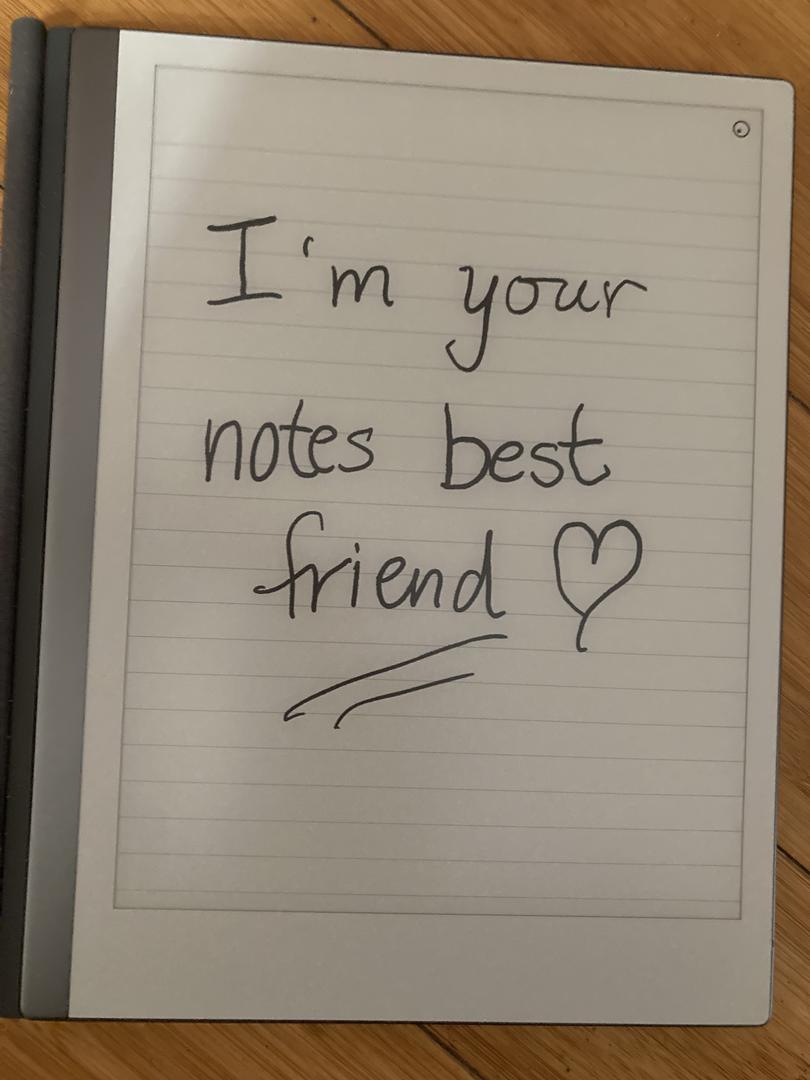 I'm your
notes best
friend ♡